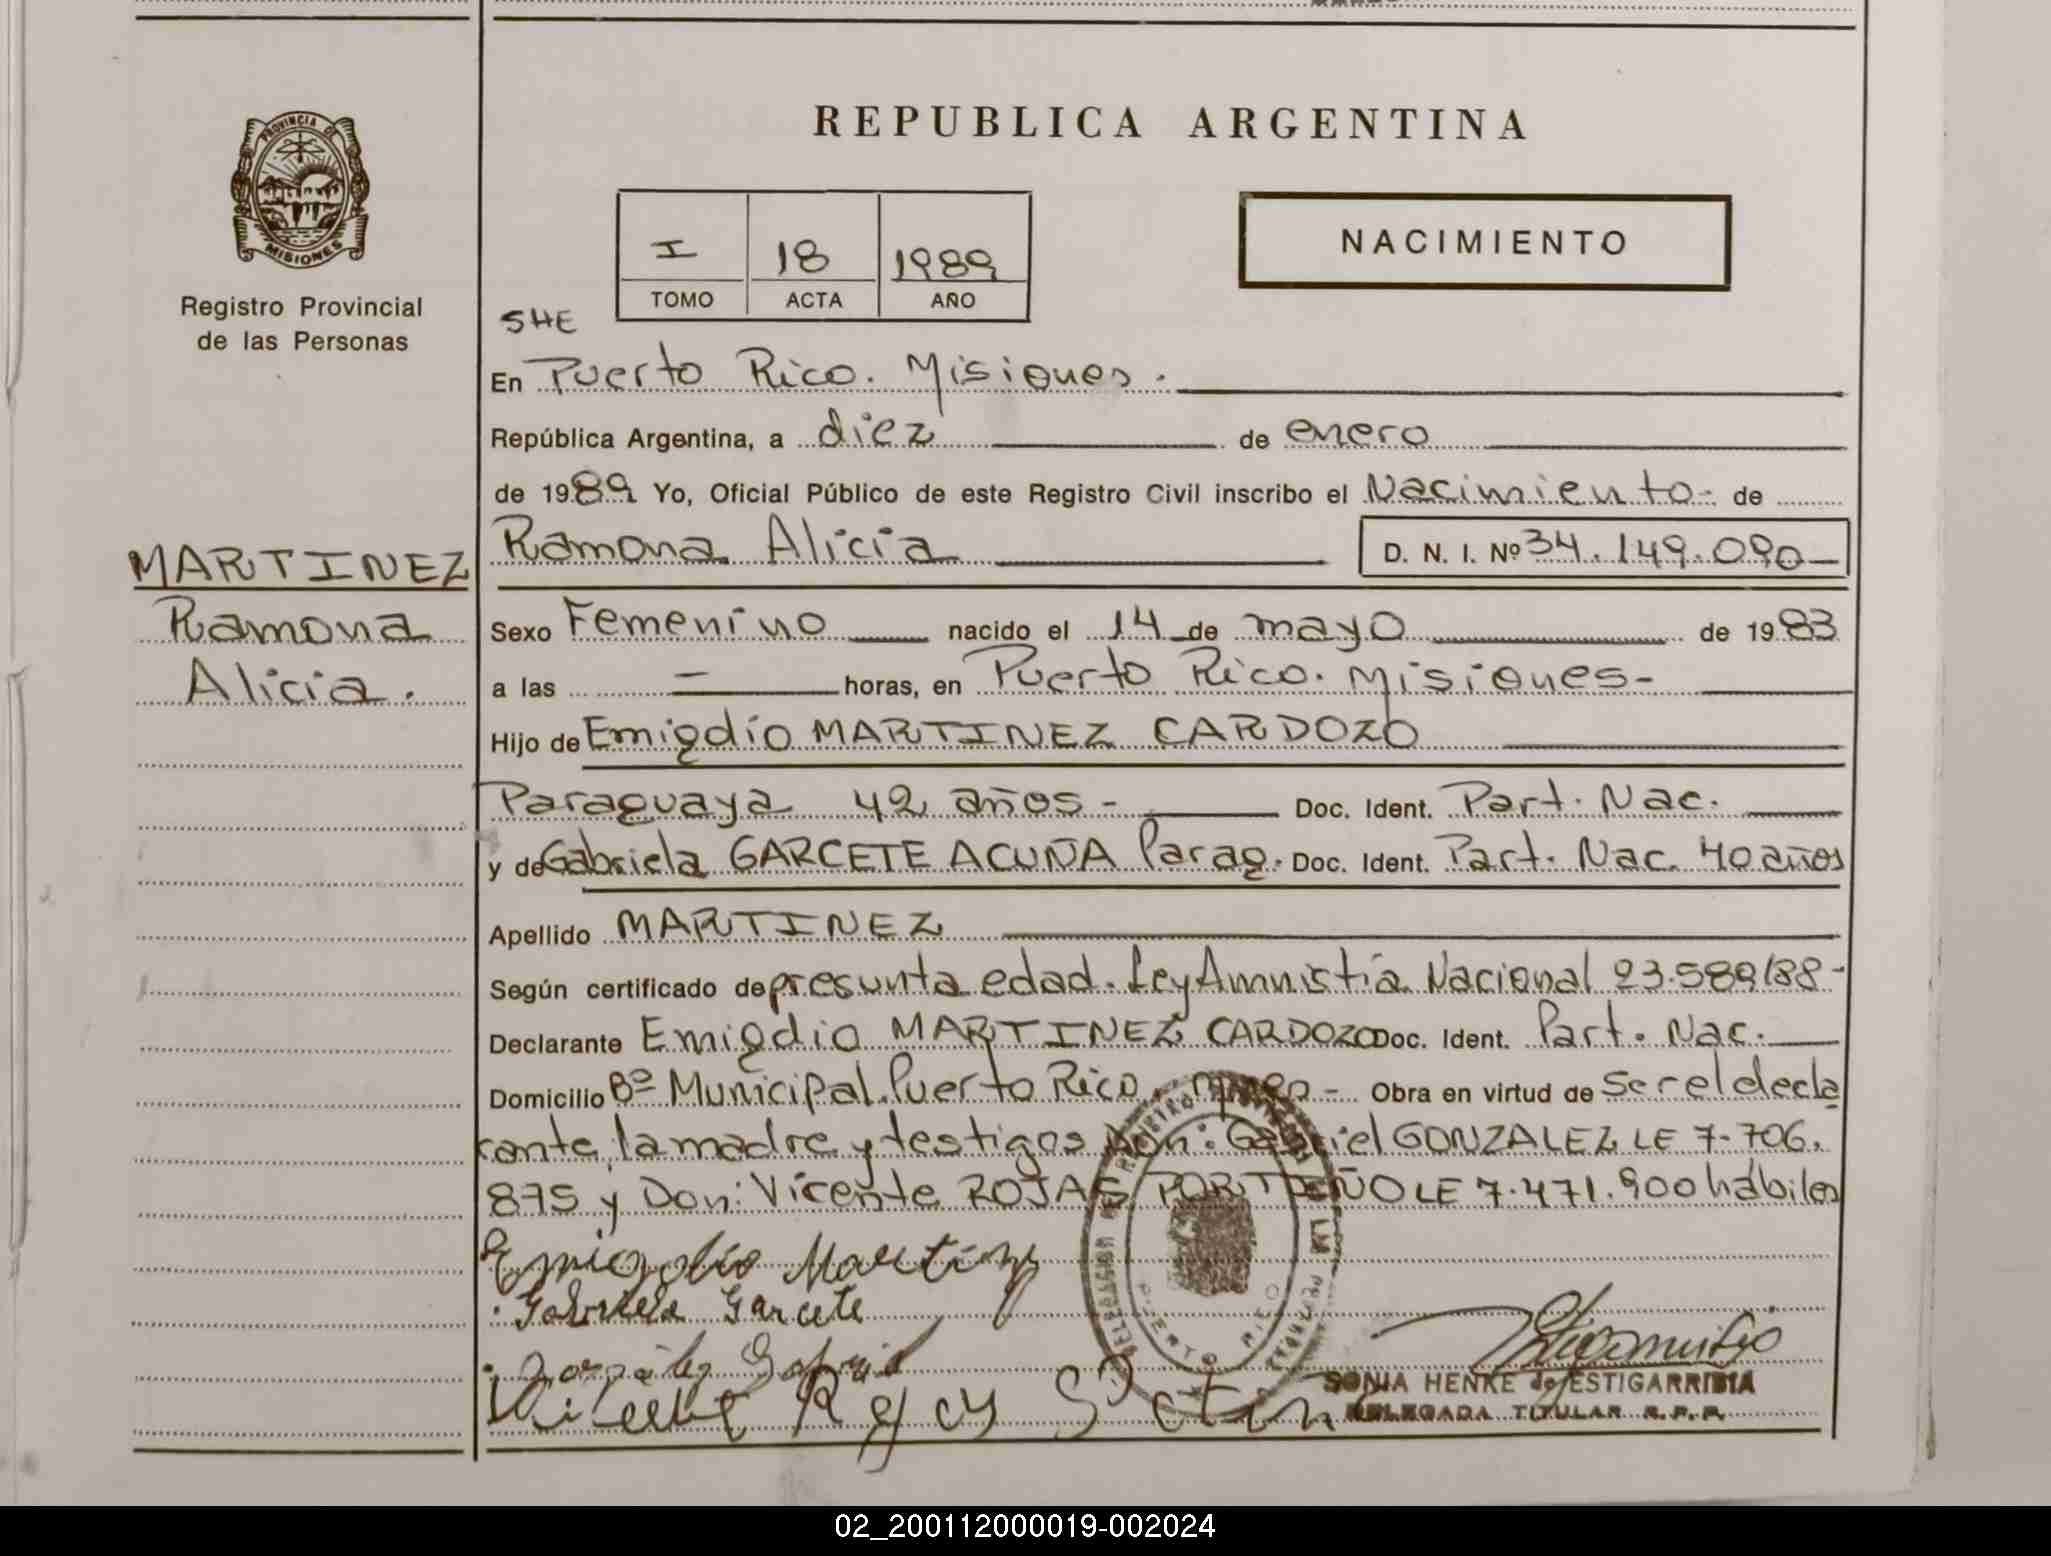 REPUBLICA ARGENTINA
PROVINCIA DE
MISIONES
Registro Provincial
de las Personas
I 18 1989
TOMO ACTA AÑO
NACIMIENTO
SHE
En Puerto Rico. Misiones.
República Argentina, a diez de enero
de 1989 Yo, Oficial Público de este Registro Civil inscribo el Nacimiento- de
Ramona Alicia D. N. I. Nº 34.149.090
MARTINEZ
Ramona
Alicia.
Sexo Femenino nacido el 14 de mayo de 1983
a las — horas, en Puerto Rico. Misiones-
Hijo de Emigdio MARTINEZ CARDOZO
Paraguaya 42 años- Doc. Ident. Part. Nac.
y de Gabriela GARCETE ACUÑA Parag. Doc. Ident. Part. Nac. 40 años
Apellido MARTINEZ
Según certificado de presunta edad. Ley Amnistía Nacional 23.589/88-
Declarante Emigdio MARTINEZ CARDOZO Doc. Ident. Part. Nac.
Domicilio Bº Municipal. Puerto Rico, Mnes- Obra en virtud de ser el decla
rante, la madre y testigos Don: Gabriel GONZALEZ LE 7.706.
875 y Don: Vicente ROJAS PORTIÑO LE 7.471.900 hábiles
Emigdio Martinez
Gabriela Garcete
González Gabriel
PUERTO RICO
SONIA HENKE de ESTIGARRIBIA
DELEGADA TITULAR R.P.P.
02_200112000019-002024